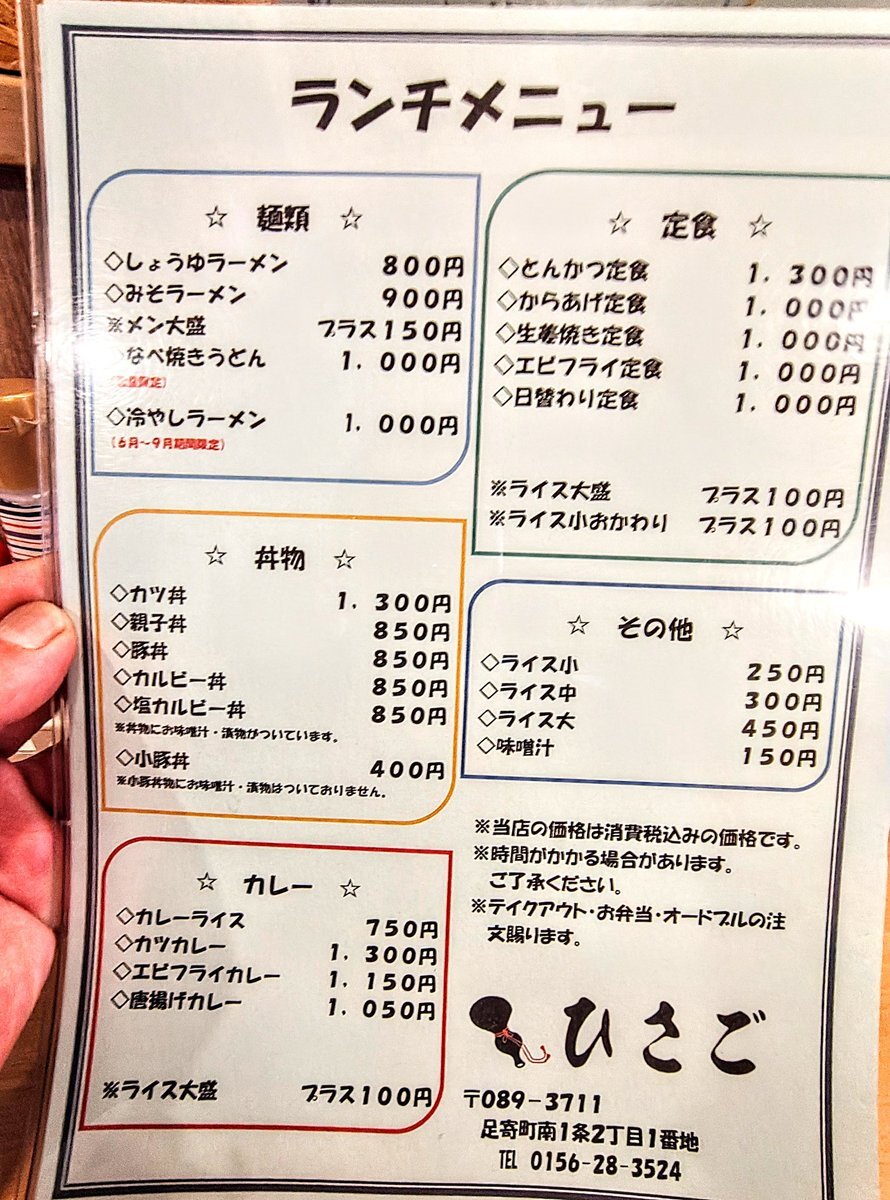 ランチメニュー
☆ 麺類 ☆
◇しょうゆラーメン 800円
◇みそラーメン 900円
※メン大盛 プラス150円
なべ焼きうどん 1,000円
◇冷やしラーメン 1,000円
(6月～9月期間限定)
☆ 定食 ☆
◇とんかつ定食 1,300円
◇からあげ定食 1,000円
◇生姜焼き定食 1,000円
◇エビフライ定食 1,000円
◇日替わり定食 1,000円
※ライス大盛 プラス100円
※ライス小おかわり プラス100円
☆ 丼物 ☆
◇カツ丼 1,300円
◇親子丼 850円
◇豚丼 850円
◇カルビー丼 850円
◇塩カルビー丼 850円
※丼物にお味噌汁・漬物がついています。
◇小豚丼 400円
※小豚丼物にお味噌汁・漬物はついておりません。
☆ その他 ☆
◇ライス小 250円
◇ライス中 300円
◇ライス大 450円
◇味噌汁 150円
☆ カレー ☆
◇カレーライス 750円
◇カツカレー 1,300円
◇エビフライカレー 1,150円
◇唐揚げカレー 1,050円
※ライス大盛 プラス100円
※当店の価格は消費税込みの価格です。
※時間がかかる場合があります。
ご了承ください。
※テイクアウト・お弁当・オードブルの注
文賜ります。
ひさご
〒089-3711
足寄町南1条2丁目1番地
TEL 0156-28-3524